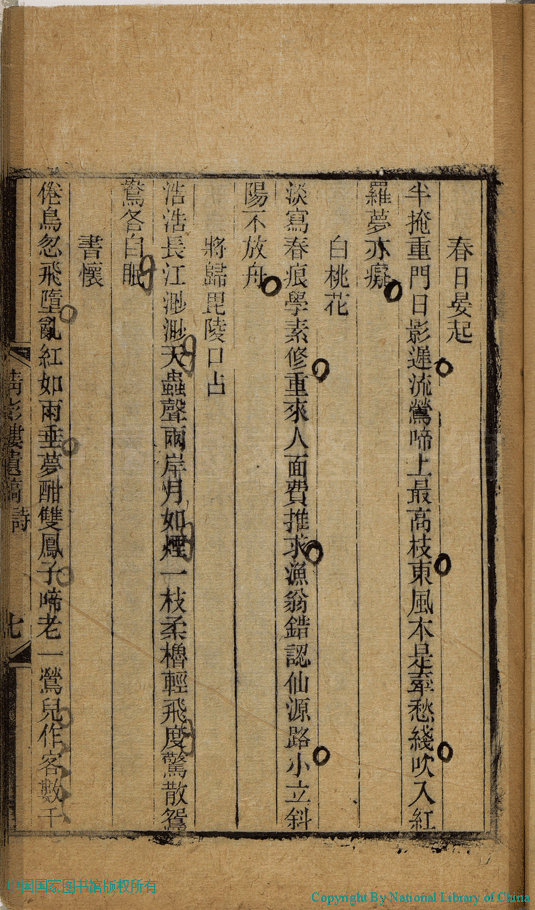 春日晏起
半掩重門日影遲流鶯啼上最高枝東風本是牽愁綫吹入紅
羅夢亦癡
白桃花
淡寫春痕學素修重來人面費推求漁翁錯認仙源路小立斜
陽不放舟
將歸毘陵口占
浩浩長江渺渺天蟲聲兩岸月如煙一枝柔櫓輕飛度驚散鴛
鴦各自眠
書懷
倦鳥忽飛墮亂紅如雨垂夢酣雙鳳子啼老一鶯兒作客數千
樓遺稿 詩
七
中国国家图书馆版权所有
Copyright By National Library of China